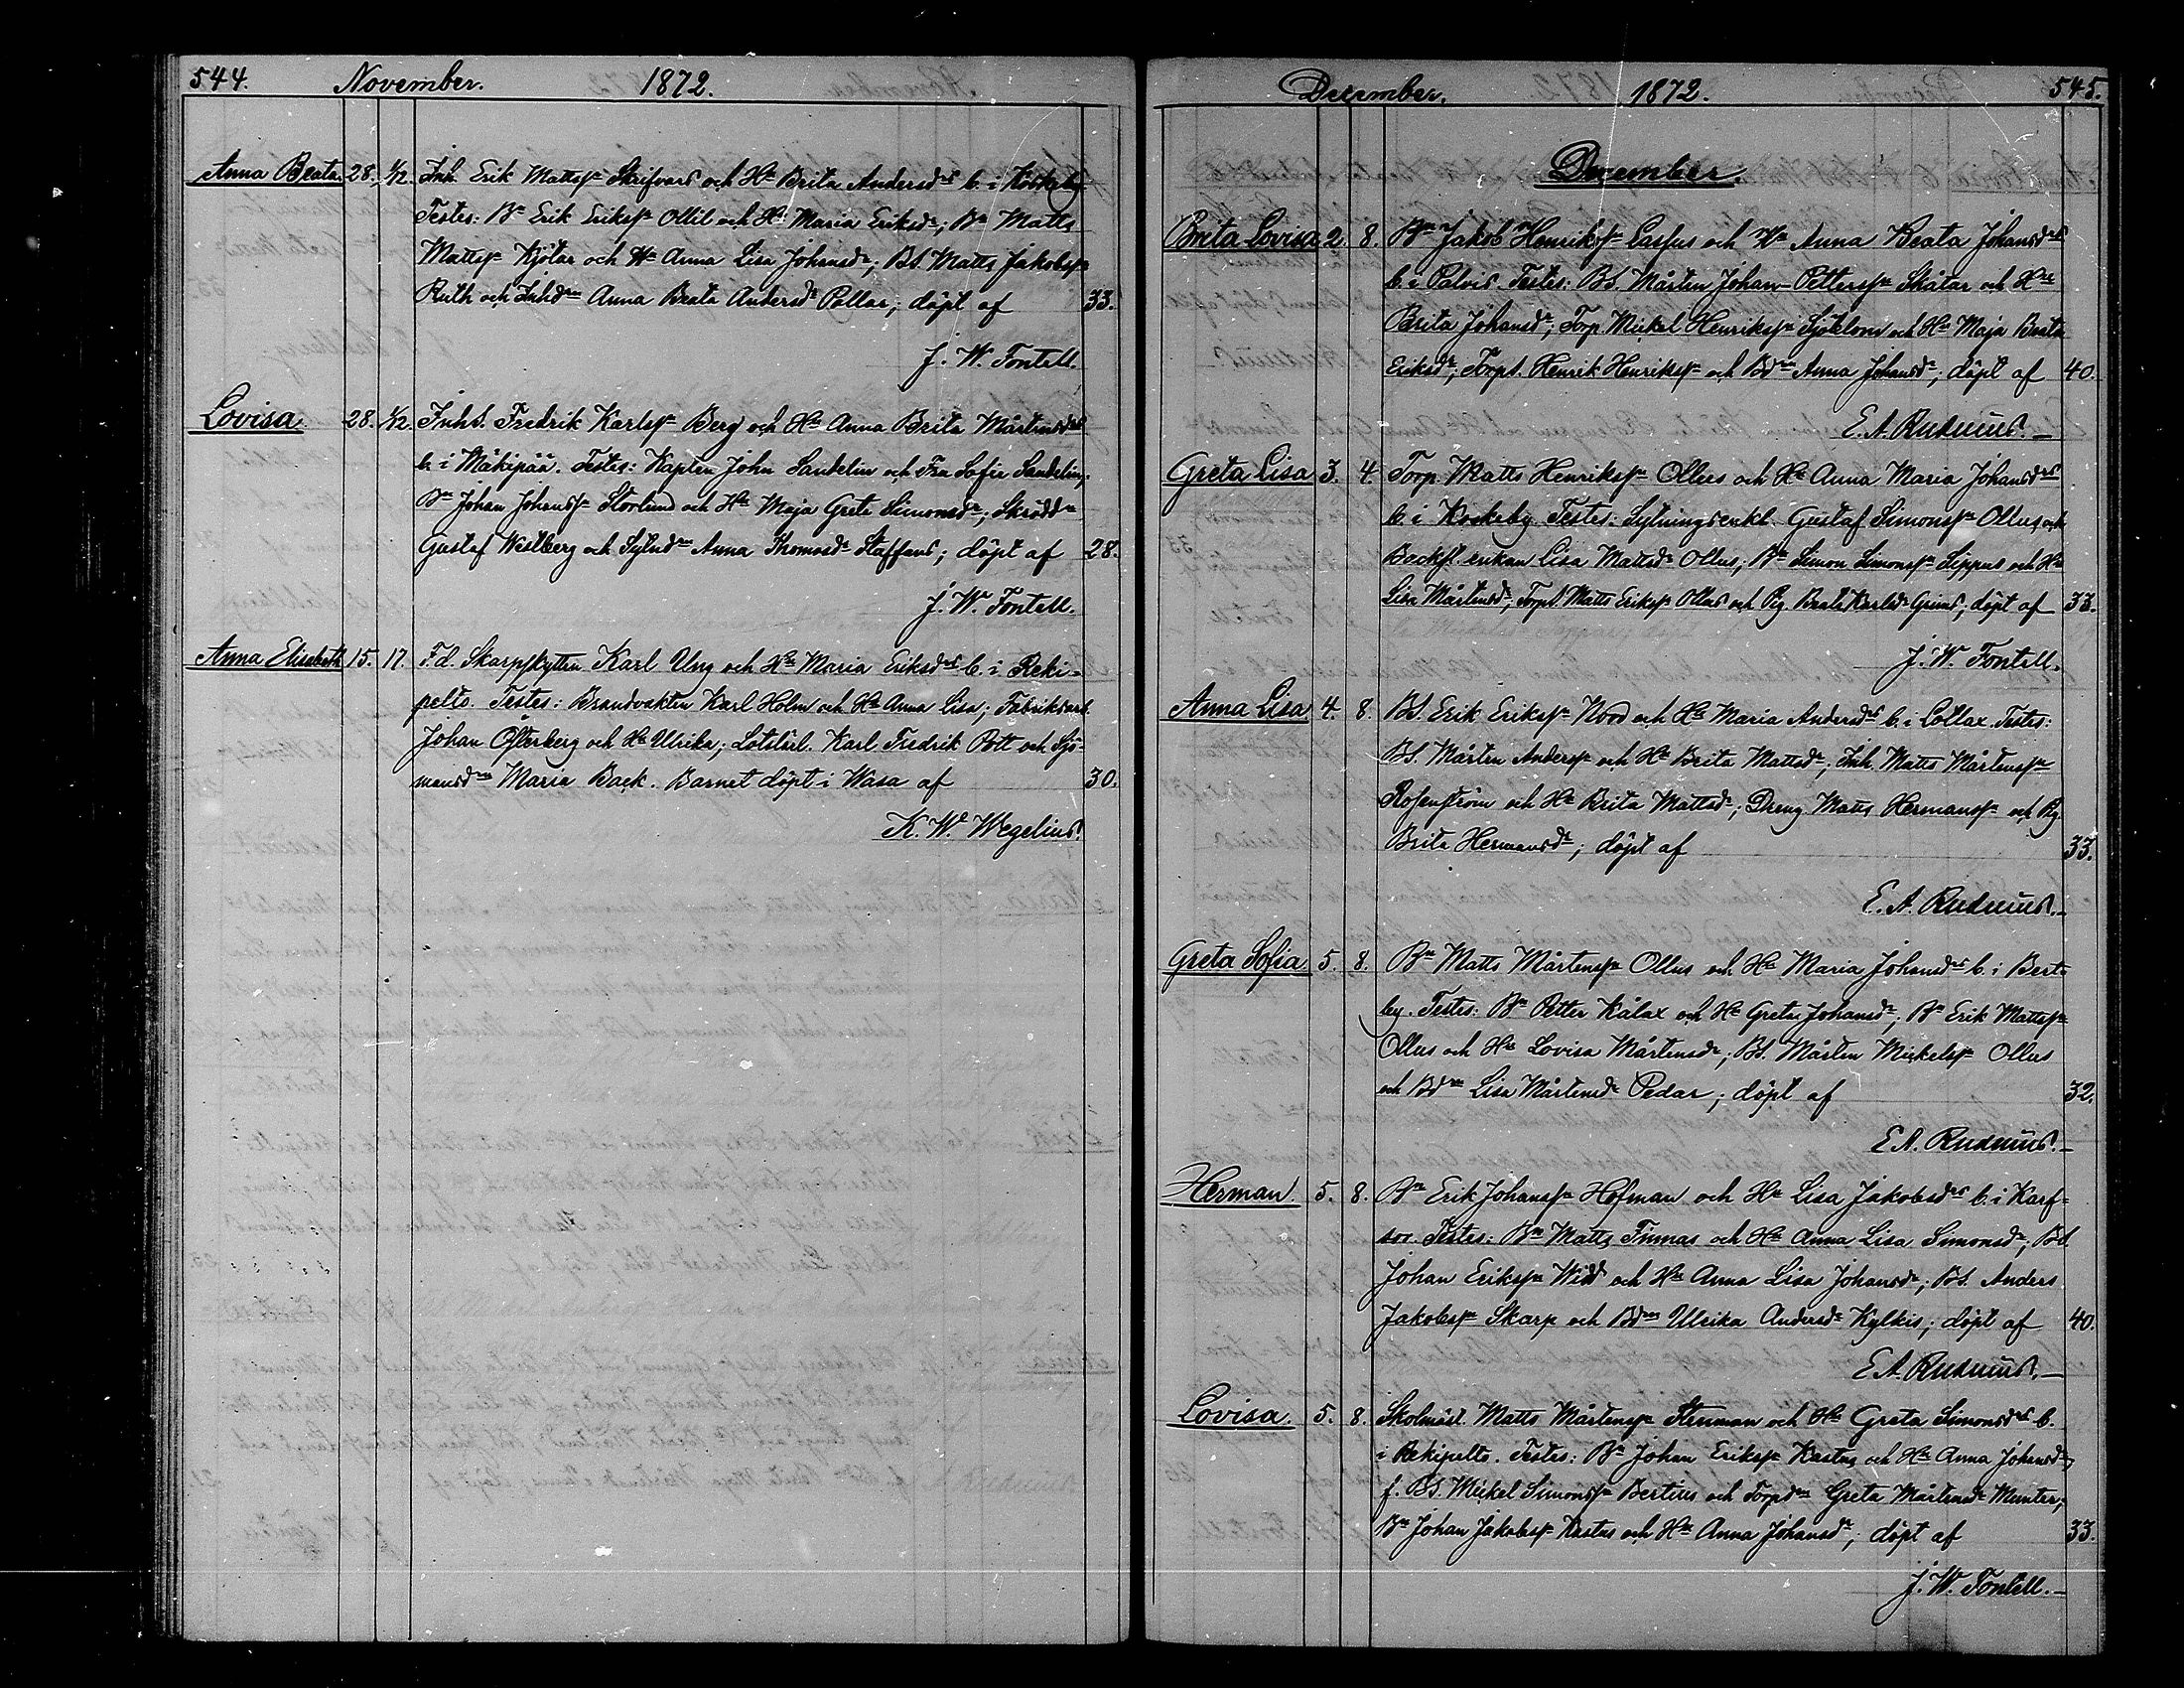 544. November. 1872.
Anna Beata. 28. 1/12. Inh. Erik Mattsn Skrifvars och Hu Brita Andersdrs b. i Koskeby
Testes: Bn Erik Eriksn Ollil och Hu Maria Eriksdr; Bn Matts
Mattsn Kjötar och Hu Anna Lisa Johansdr; Bs. Matts Jakobsn
Ruth och Inhdrn Anna Beata Andersdr Pellar; döpt af 33.
J. W. Fontell.
Lovisa. 28. 1/12. Inhs. Fredrik Karlsn Berg och Hu Anna Brita Mårtensdrs
b. i Mäkipää. Testes: Kapten John Sandelin och Fru Sofie Sandelin;
Bn Johan Johanssn Storlund och Hu Maja Greta Simonsdr; Skrädd
Gustaf Westberg och Sytndrn Anna Thomasdr Staffans; döpt af 28.
J. W. Fontell.
Anna Elisabeth 15. 17. F.d. Skarpskytten Karl Ung och Hu Maria Eriksdrs b. i Reki-
pelto. Testes: Brandvakten Karl Holm och Hu Anna Lisa; Fabriksarb.
Johan Österberg och Hu Ulrika; Lotslärl. Karl Fredrik Pott och Sjö-
mansdrn Maria Back. Barnet döpt i Wasa af 30.
K. W. Wegelius.
December. 1872. 545.
December.
Brita Lovisa 2. 8. Bn Jakob Henriksn Lassus och Hu Anna Beata Johansdrs
b. i Palvis. Testes: Bs. Mårten Johan-Petterssn Skåtar och Hu
Brita Johansdr; Torp. Mickel Henrikssn Sjöblom och Hu Maja Beata
Eriksdr; Torps. Henrik Henriksn och Bdrn Anna Johansdr; döpt af 40.
E. A. Rudnäus.
Greta Lisa 3. 4. Torp. Matts Henriksn Ollus och Hu Anna Maria Johansdrs
b. i Koskeby. Testes: Sytningsenkl. Gustaf Simonsn Ollus och
Backst. enkan Lisa Mattsdr Ollus; Bn Simon Simonsn Sippus och Hu
Lisa Mårtensdr; Torps. Matts Eriksn Ollus och Pig. Beata Karlsdr Grims; döpt af 33.
J. W. Fontell.
Anna Lisa 4. 8. Bs. Erik Eriksn Nord och Hu Maria Andersdrs b. i Lottax. Testes:
Bs. Mårten Anderssn och Hu Brita Mattsdr; Inh. Matts Mårtenssn
Rosenström och Hu Brita Mattsdr; Dreng Matts Hermanssn och Pig.
Brita Hermansdr; döpt af 33.
E. A. Rudnäus.
Greta Sofia 5. 8. Bn Matts Mårtensn Ollus och Hu Maria Johansdrs b. i Bert-
by. Testes: Bn Petter Kålax och Hu Greta Johansdr; Bn Erik Mattsn
Ollus och Hu Lovisa Mårtensdr; Bs. Mårten Mickelsn Ollus
och Bdrn Lisa Mårtensdr Pedar; döpt af 32.
E. A. Rudnäus.
Herman. 5. 8. Bn Erik Johanssn Hofman och Hu Lisa Jakobsdrs b. i Karf-
sor. Testes: Bn Matts Finnas och Hu Anna Lisa Simonsdr; Bd
Johan Eriksn Widd och Hu Anna Lisa Johansdr; Bs. Anders
Jakobsn Skarp och Bdrn Ulrika Andersdr Kylkis; döpt af 40.
E. A. Rudnäus.
Lovisa. 5. 8. Skolmäst. Matts Mårtensn Stenman och Hu Greta Simonsdrs b.
i Rekipelto. Testes: Bn Johan Eriksn Kastus och Hu Anna Johansdr;
f. Bs. Mickel Simonssn Bertius och Torpdrn Greta Mårtensdr Munter;
Bn Johan Jakobsn Kastus och Hu Anna Johansdr; döpt af 33.
J. W. Fontell.